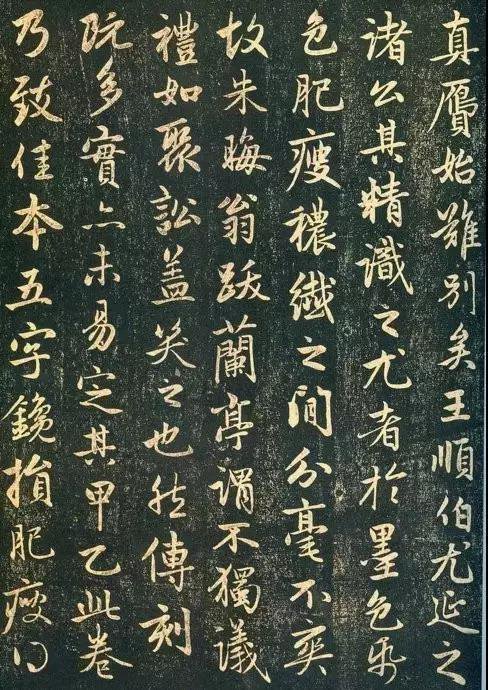 真贗始難別矣王順伯尤延之
諸公其精識之尤者於墨色帋
色肥瘦穠纖之間分毫不爽
故朱晦翁跋蘭亭謂不獨議
禮如聚訟盖笑之也然傳刻
既多實亦未易定其甲乙此卷
乃致佳本五字鑱損肥瘦